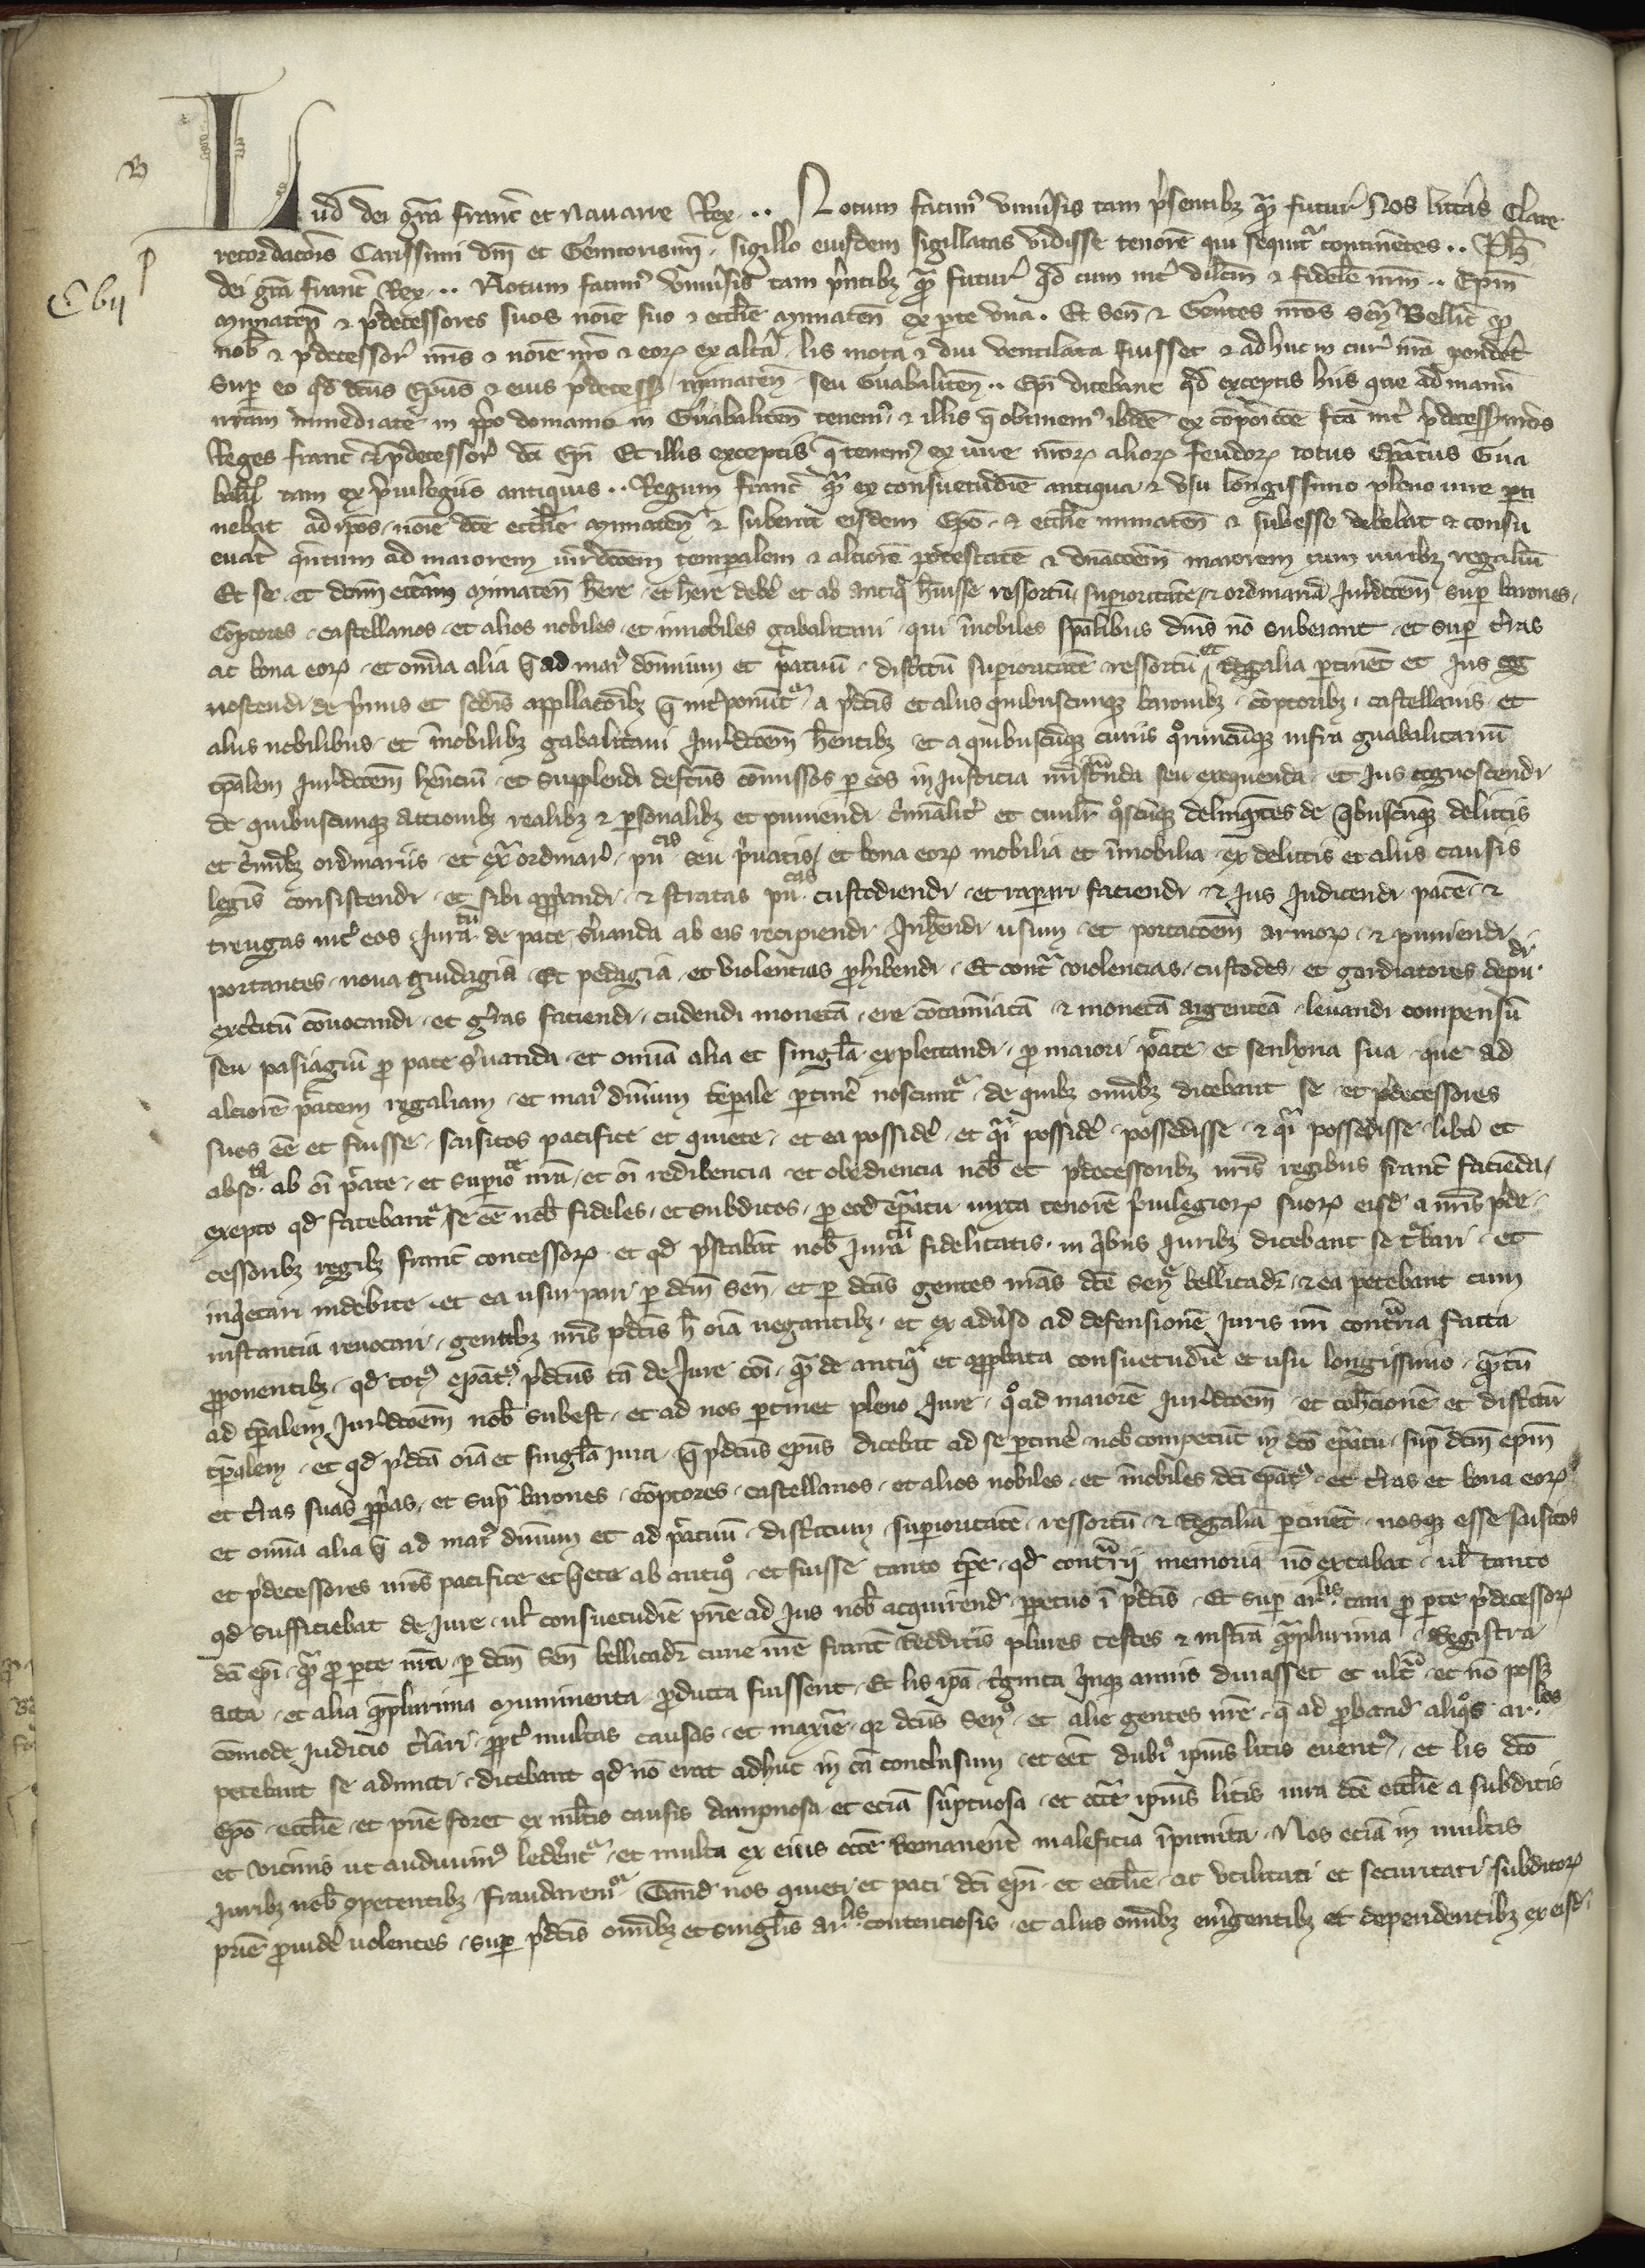 B
Lud dei gra franc et Nauarre Rex ·· Notum facimꝰ vniuersis tam psentibꝫ qᵃ futur Nos litteras Clare
p
recordacois Carissimi dni et Genitoris nri sigillo eiusdem sigillatas vidisse tenore qui sequitᵃ continentes ·· Ph
Cbii
dei gra franc Rex ·· Notum facimꝰ vniuersis tam pntibꝫ qᵃ futur qd cum int dilcm ⁊ fidele nrm ·· Epm
mimaten ⁊ pdecessores suos noie suo ⁊ ecclie mimaten ex pte vna · Et Sen ⁊ Gentes nros Sen Bellic p
nob ⁊ pdecessor nris ⁊ noie nro ⁊ eoꝝ ex altᵃ lis mota ⁊ diu ventilata fuisset ⁊ adhuc in cur nra pender
Sup eo qd dcus Epus ⁊ eius pdecess mimaten seu Guabaliten ·· Epi dicebant qd exceptis hiis que ad manu
nram inmediate in pro domanio in Guabaliten tenemꝰ ⁊ illis q obtinemꝰ ibide ex coposicoe fca int pdecess nros
Reges franc ⁊ pdecessor dci Epi Et illis exceptis q tenemꝰ ex iure nroꝝ alioꝝ feudoꝝ totus Epatus Gua
balit tam ex priuilegiis antiquis ·· Regum franc qᵃ ex consuetudie antiqua ⁊ vsu longissimo pleno iure pti
nebat ad ipos noie dce ecclie mimaten ⁊ suberat eisdem Epo ⁊ ecclie mimaten ⁊ subesse debebat ⁊ consu
euat quntum ad maiorem iurdcoem temporalem ⁊ alciore potestate ⁊ dnacoem maiorem cum iuribꝫ regaliu
Et se et dcam eccliam mimaten here et here debe et ab antiqᵒ huisse ressortu supioritate ⁊ ordinaria Jurdcoem sup barones
Coptores castellanos et alios nobiles et inobiles gabalitani qui inobiles spalibus dnis no suberant et sup tras
ac bona eoꝝ et omia alia q ad maiꝰ dominium et pratiuu districtu supioritate ressortu et regalia ptinet et Jus cog
noscendi de primis et scdis appellacoibꝫ q intponutᵃ a pdcis et aliis quibuscunqꝫ baronibꝫ coptoribꝫ castellanis et
aliis nobilibus et inobilibꝫ gabalitani Jurdcoem hentibꝫ et a quibuscuqꝫ curiis qrucuqꝫ infra guabalitaniu
tpalem Jurdcoem henciu et supplendi defcus comissos p eos in Justicia mistranda seu exequenda et Jus cognoscendi
de quibuscunqꝫ accionibꝫ realibꝫ ⁊ psonalibꝫ et puniendi criminalit et ciuilr qoscuqꝫ delinqntes de qbuscuqꝫ delictis
et criminibꝫ ordinariis et exᵃordinar pucis seu priuatis et bona eoꝝ mobilia et imobilia ex delictis et aliis causis
legis consistendi et sibi appandi ⁊ stratas pucas custodiendi et rapari faciendi ⁊ Jus Judicendi pace ⁊
treugas int eos Juratu de pace seruanda ab eis recipiendi Inhibendi usum et portacoem armoꝝ ⁊ puniendi
portantes noua guidagia et pedagia et violentias prohibendi Et contᵃ violencias custodes et gardiatores depudi
excitu conuocandi et gras faciendi cudendi moneta ere cotaminata ⁊ moneta argentea leuandi compensu
seu pasiagiu p pace seruanda et omia alia et singla explectandi p maiori prate et senhoria sua que ad
alciore pratem regaliam et maiꝰ dominium teporale ptine noscuntᵃ de quibꝫ omibꝫ dicebant se et pdecessores
suos ee et fuisse saisitos pacifice et quiete et ea posside et qᵃi posside possedisse ⁊ qᵃi possedisse libe et
absota ab oi prate et supiote nra et oi redibencia et obediencia nob et pdecessoribꝫ nris regibus franc facienda
excepto qd fatebantᵃ se ee nob fideles et subditos p eod epatu iuxta tenore priuilegioꝝ suoꝝ eisd a nris pde
cessoribꝫ regibꝫ franc concessoꝝ et qd pstabat nob Juratu fidelitatis in qbus Juribꝫ dicebant se tᵃbari et
inqetari indebite et ea usurpari p dcm Sen et p dcas gentes nras dce Senᵉ bellicadri ⁊ ea petebant cum
instancia reuocari gentibꝫ nris pdcis h oia negantibꝫ et ex aduso ad defensione Juris nri contᵃria facta
proponentibꝫ qd totꝰ epatꝰ pdcus ta de Jure coi qᵃ de antiqᵃ et approbata consuetudie et usu longissimo qᵃtu
ad tpalem Jurdcoem nob subest et ad nos ptinet pleno Jure qᵒad maiore Jurdcoem et cohcione et districtu
tpalem et qd pdca oia et singla Jura q pdcus epus dicebat ad se ptine nob competut in dco epatu supᵃ dcm epm
et tras suas pprias et supᵃ barones coptores castellanos et alios nobiles et inobiles dci epatꝰ et tras et bona eoꝝ
et omia alia q ad maiꝰ dnium et ad pratiuu districtum supioritate ressortu ⁊ regalia ptinet nosqꝫ esse saisitos
et pdecessores nros pacifice et qete ab antiqᵒ et fuisse tanto tpe qd contᵃrii memoria no extabat ul tanto
qd sufficiebat de Jure ul consuetudie prie ad Jus nob acquirend ppetuo i pdcis Et sup arlis tam p pte pdecessoꝝ
dci epi qᵃ p pte nra p dcm Sen bellicadri curie nre franc redditis plures testes ⁊ instra qᵃplurima Registra
acta et alia qᵃplurima munimenta producta fuissent Et lis ipa triginta qnqꝫ annis durasset et ultᵃ et no possꝫ
comode iudicio triari ppt multas causas et maxie qr dcus Senꝰ et alie gentes nre q ad proband aliqᵒs arlos
petebant se admitti dicebant qd no erat adhuc in ca conclusum et eet dubiꝰ ipius litis euentꝰ et lis dco
Epo ecclie et prie foret ex mltis causis dampnosa et ecia suptuosa et occᵃ ipius litis iura dce ecclie a subditis
et vicinis ut audiuimꝰ lederentᵃ et multa ex eius occoe Romanent maleficia ipunita Nos ecia in multis
Juribꝫ nob copetentibꝫ fraudaremᵃ Tand nos quieti et paci dci epi et ecclie ac vtilitati et securitati subditoꝝ
prie prouide uolentes sup pdcis omibꝫ et singlis arlis contenciosis et aliis omibꝫ emgentibꝫ et dependentibꝫ ex eisd